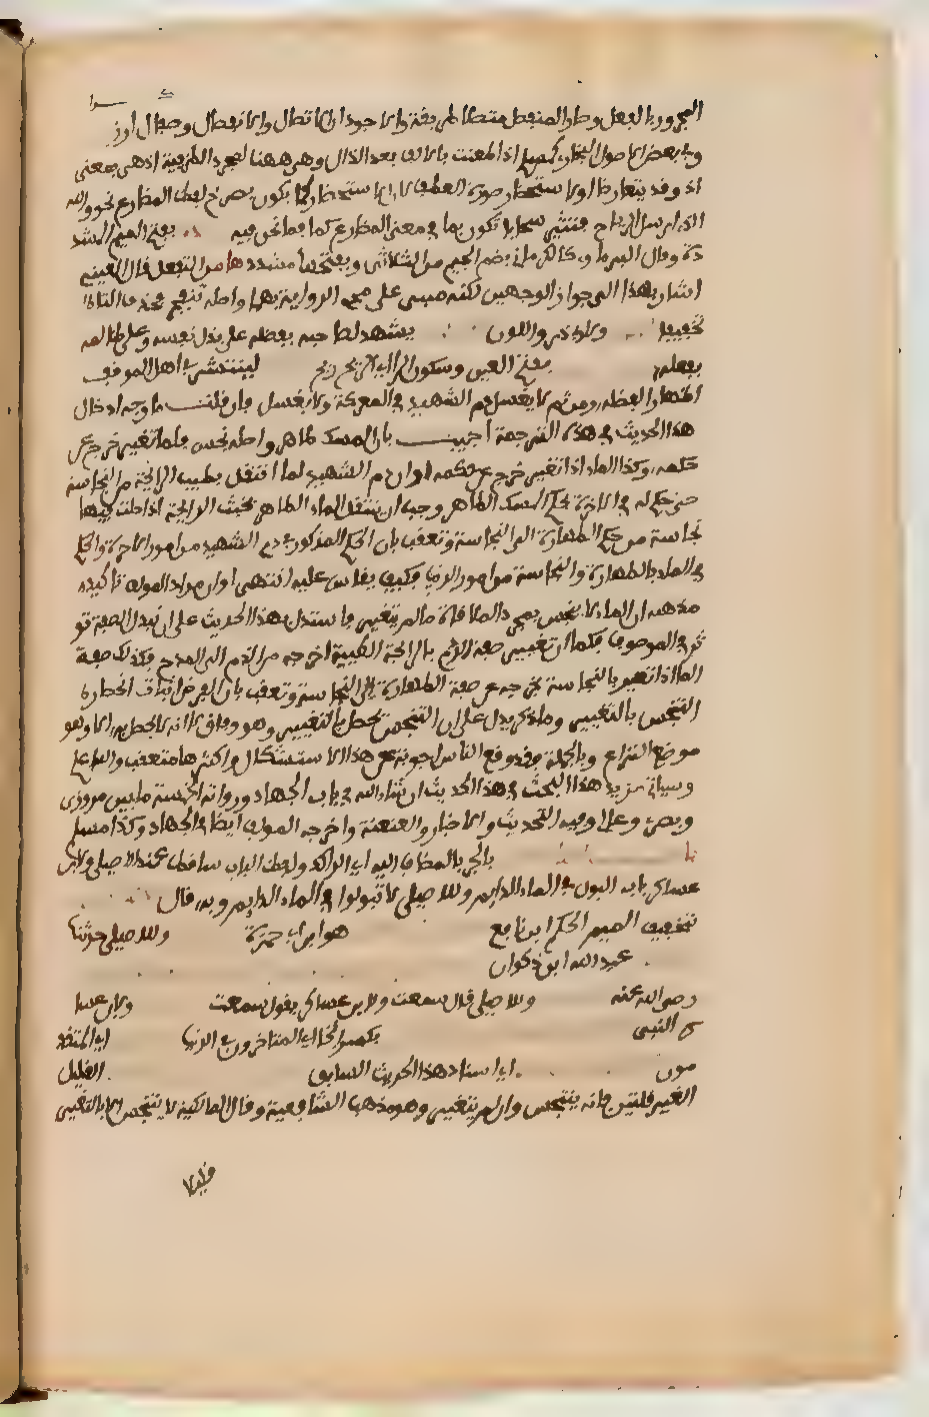 المجرور بالفعل وصار المنفصل متصلا
وفي بعض الاصول اذا طعنت بالالف بعد الذال وهي ههنا لمجرد الظرفية اذ هي بمعنى
اذ وقد يتعارضا او لاستحضار صورة الطعن لان الاستحضار كما يكون بصريح لفظ المضارع نحو والله
الذي ارسل الرياح فتثير سحابا تكون بما في معنى المضارع كما فيما نحن فيه بفتح الجيم المشد
دة وقال البرماوي كالكرماني بضم الجيم من الثلاثي وبفتحها مشددة من التفعل قال العيني
اشار بهذا الى جواز الوجهين لكنه مبني على مجيء الرواية بهما واصله تتفجر فحذف التاء
تخفيفا ولابي ذر واللون يشهد لصاحبه بفضله على بذل نفسه وعلى ظالمه
بفعله بفتح العين وسكون الراء اي الريح ريح لينتشر في اهل الموقف
اظهارا لفضله ومن ثم لا يغسل دم الشهيد في المعركة ولا يغسل فان قلت ما وجه ادخال
هذا الحديث في هذه الترجمة اجيب بان المسك طاهر واصله نجس فلما تغير خرج عن
حكمه وكذا الماء اذا تغير خرج عن حكمه او ان دم الشهيد لما انتقل بطيب الرائحة من النجاسة
حتى حكم له في الاخرة بحكم المسك الطاهر وجب ان ينتقل الماء الطاهر بخبث الرائحة اذا حلت فيها
نجاسة من حكم الطهارة الى النجاسة وتعقب بان الحكم المذكور في دم الشهيد من امور الاخرة والحكم
في الماء بالطهارة والنجاسة من امور الدنيا فكيف يقاس عليه انتهى او ان مراد المولف تاكيد
مذهبه ان الماء لا ينجس بمجرد الملاقاة مالم يتغير فاستدل بهذا الحديث على ان تبدل الصفة تو
ثر في الموصوف فكما ان تغيير صفة الدم بالرائحة الطيبة اخرجه من الذم الى المدح فكذلك صفة
الماء اذا تغير بالنجاسة يخرجه عن صفة الطهارة الى النجاسة وتعقب بان الغرض اثبات انحصار
التنجس بالتغيير وما ذكر يدل على ان التنجس يحصل بالتغيير وهو وفاق لا انه لا يحصل الا به وهو
موضع النزاع وبالجملة فقد وقع للناس اجوبة عن هذا الاستشكال واكثرها متعقب والله اعلم
وسياتي مزيد هذا البحث في هذا الحديث ان شاء الله في باب الجهاد ورواته الخمسة ما بين مروزي
وبصري وفيه التحديث والاخبار والعنعنة واخرجه المولف ايضا في الجهاد وكذا مسلم
بالجر بالمضاف اليه اي الراكد ولفظ الباب ساقط عند الاصيلي ولابن
عساكر باب البول في الماء الدايم وللاصيلي لا تبولوا في الماء الدايم وبه قال
تخفيف الميم الحكم ابن نافع هو ابن ابي حمزة وللاصيلي حدثنا
عبد الله ابن ذكوان
رضي الله عنه وللاصيلي قال سمعت ولابن عساكر يقول سمعت ولابن عسا
كر النبي بكسر الخا اي المتاخرون في الدنيا اي المتقد
مون اي اسناد هذا الحديث السابق القليل
الغير قلتين فانه يتنجس وان لم يتغير وهو مذهب الشافعية وقال المالكية لا يتنجس الا بالتغيير
قليلا